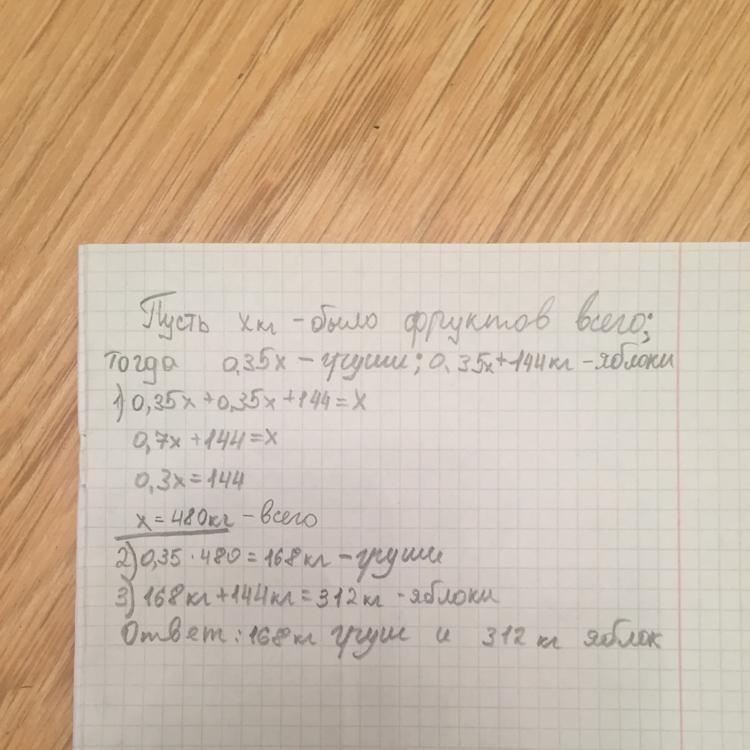 Пусть x кг - было фруктов всего;
тогда 0,35x - груши; 0,35x+144кг - яблоки
1) 0,35x+0,35x+144=x
0,7x+144=x
0,3x=144
x=480кг - всего
2) 0,35·480=168кг - груши
3) 168кг+144кг=312кг - яблоки
Ответ: 168кг груш и 312 кг яблок